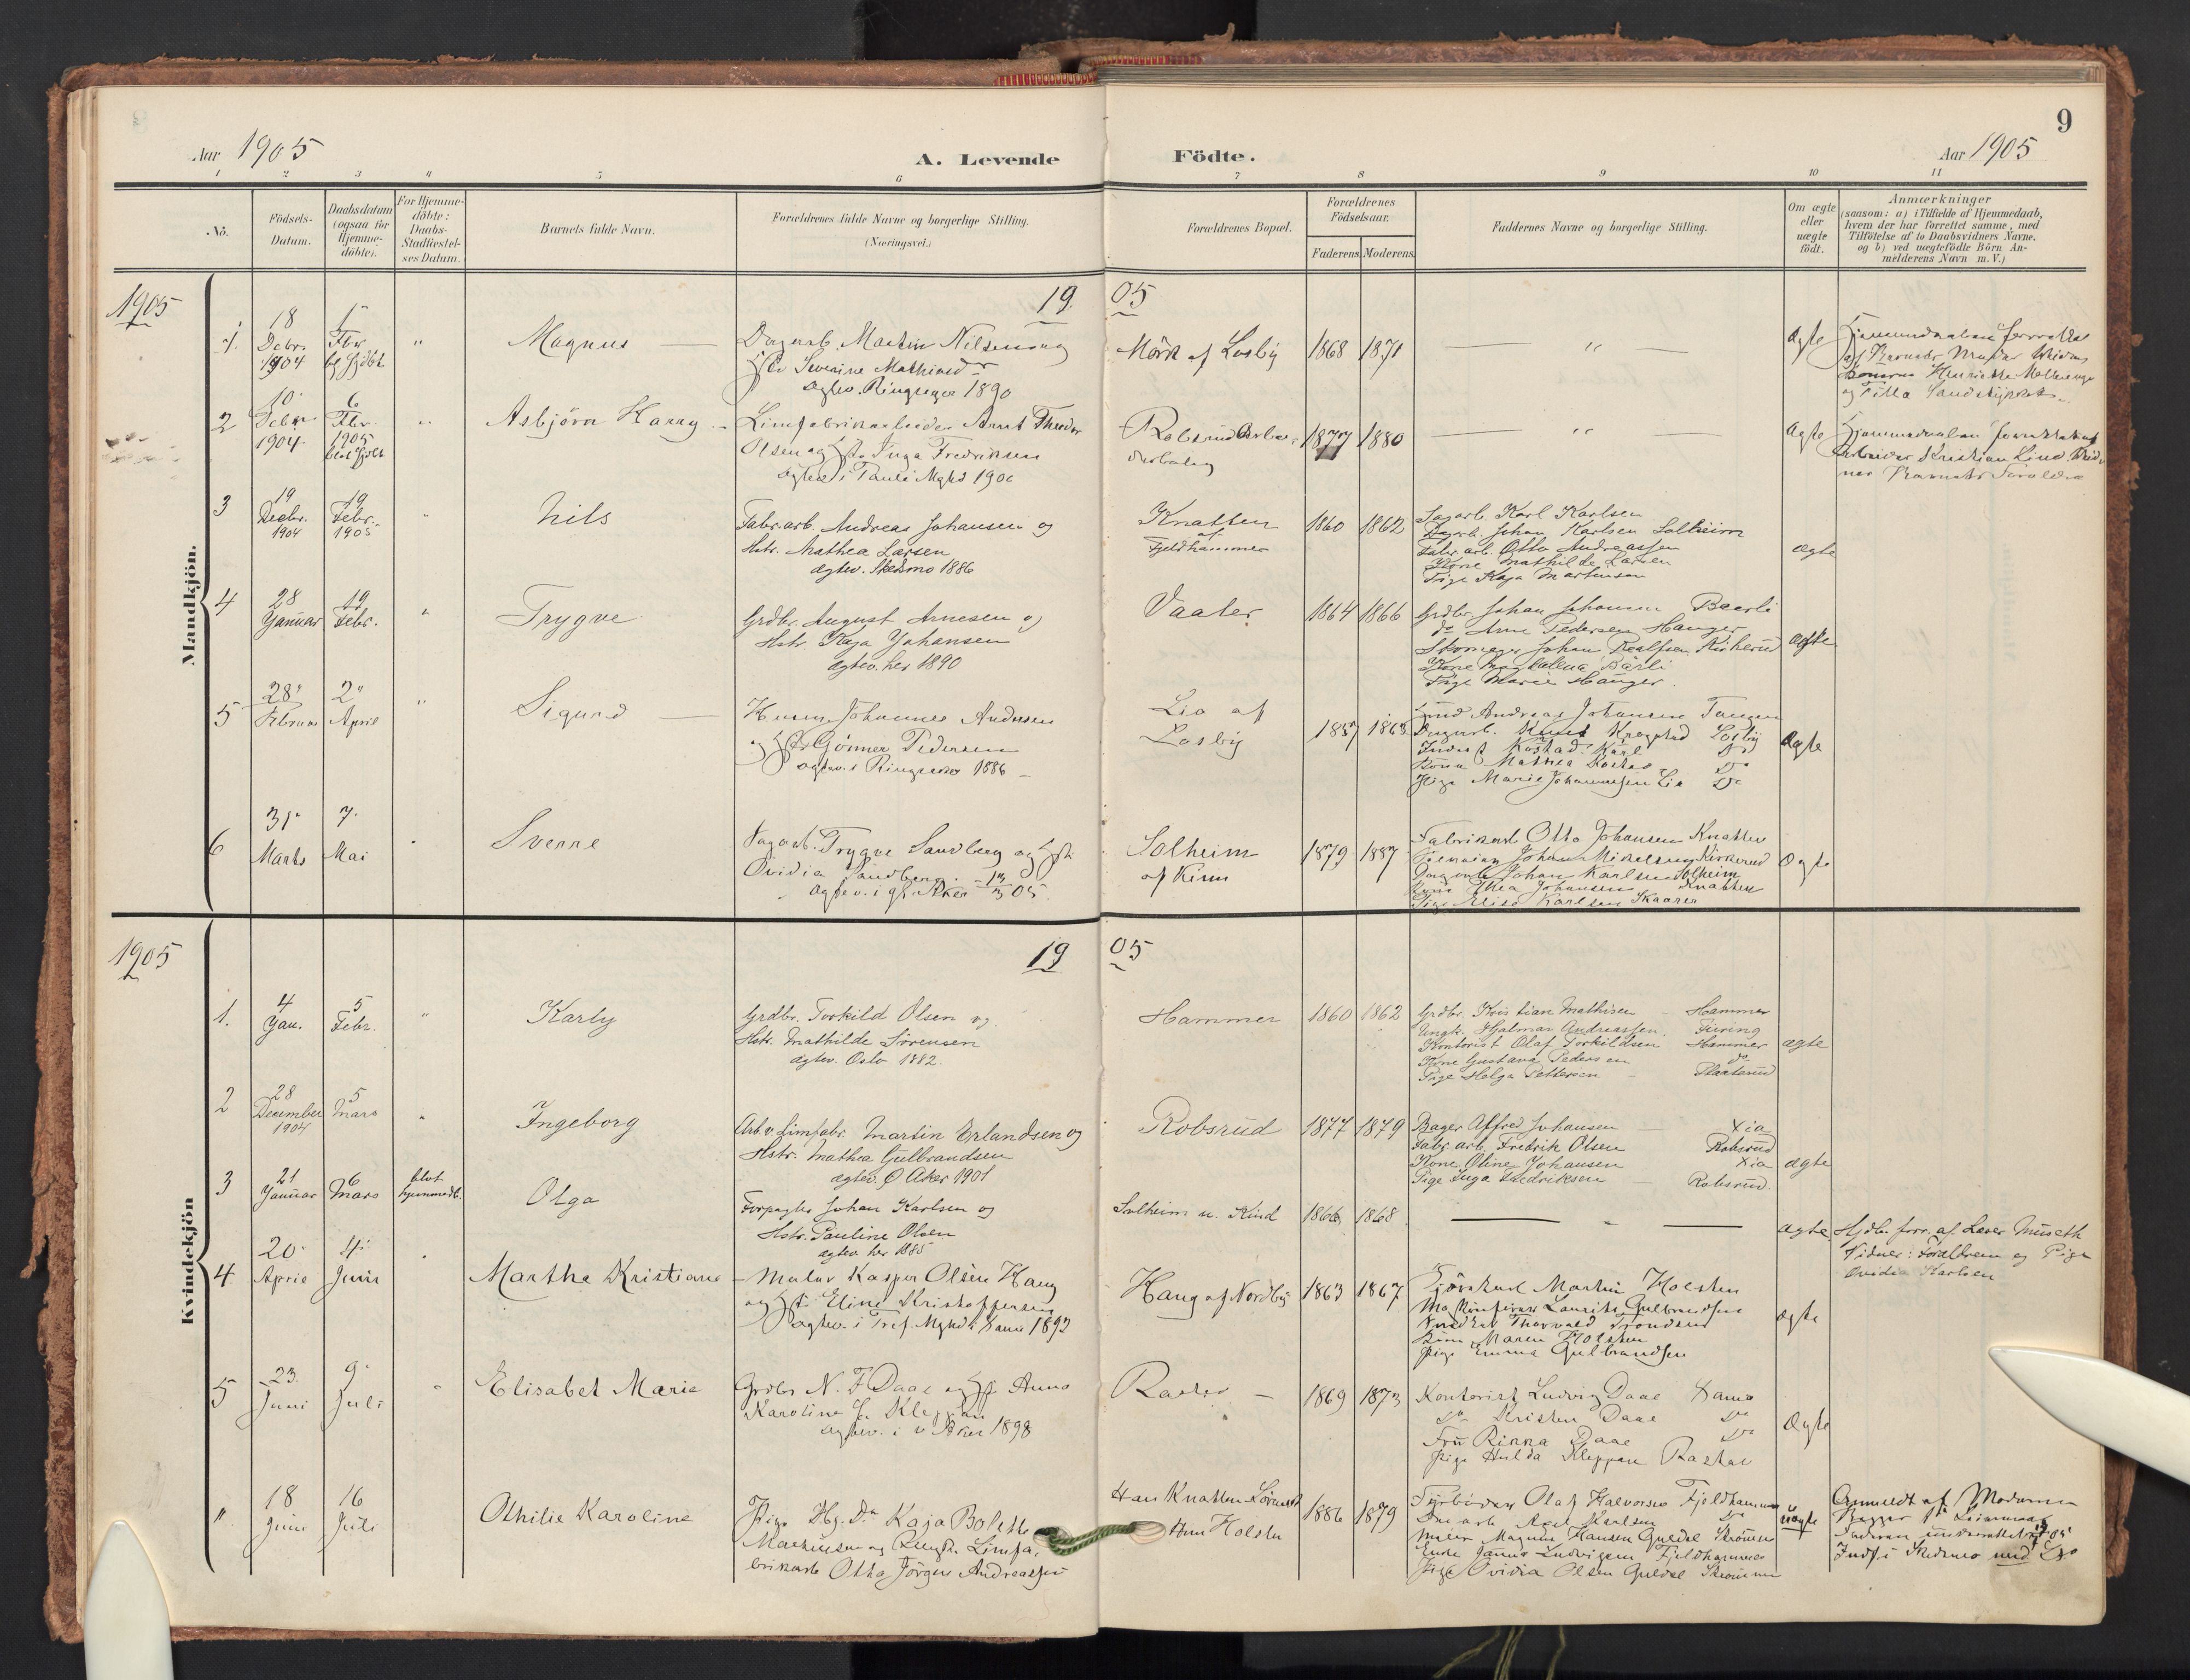 9
Aar 1905
A. Levende
Födte.
Aar 1905
1 2 3 4 5 6 7 8 9 10 11
No.
Födsels-
Datum.
Daabsdatum
(ogsaa for
Hjemme-
döbte).
For Hjemme-
döbte:
Daabs-
Stadfæstel-
ses Datum.
Barnets fulde Navn.
Forældrenes fulde Navne og borgerlige Stilling.
(Næringsvei.)
Forældrenes Bopæl.
Forældrenes
Födselsaar.
Faderens. Moderens.
Faddernes Navne og borgerlige Stilling.
Om ægte
eller
uægte
födt.
Anmærkninger
(saasom: a) i Tilfælde af Hjemmedaab,
hvem der har forrettet samme, med
Tilföielse af to Daabsvidners Navne.
og b) ved uægtefödte Börn An-
melderens Navn m. V.)
1905
19
05
Mandkjön.
1.
18
Debr.
1904
1
Fbr
"
Magnus
Dagarb. Martin Nilsen og
Severine Mathisd
ægtev. Ringsager 1890
Mörk af Losby
1868
1871
"
ægte
Hjemmedaaben forrettet
af Barnets
2
10
Debr
1904
6
Fbr
1905
"
Asbjörn Harry
Limfabrikarbeider Arnt Theodor
Olsen og Inga Fredriksen
ægtev. i Pauli Mghd 1900
Robsrud
1877
1880
"
ægte
Hjemmedaaben forrettet af
Arbeider Kristian Lind.
Barnets Forældre
3
19
Decbr.
1904
19
Febr.
1905
"
Nils
Fabr.arb. Andreas Johansen og
Hstr. Mathea Larsen
ægtev. Skedsmo 1886
Knatten
af
Fjeldhammer
1860
1862
Sagarb. Karl Karlsen
Dagarb. Johan Karlsen Solheim
Fabr. arb. Otto Andreassen
Kone Mathilde Larsen
Pige Kaja Martensen
ægte
4
28
Januar
19
Febr.
"
Trygve
Grdbr. August Arnesen og
Hstr. Kaja Johansen
ægtev. her 1890
Vaaler
1864
1866
Grdbr. Johan Johansen Baarli
do Arne Pedersen Hauger
Skomager Johan
Kone Magdalena Bärli
Pige Marie Hauger
ægte
5
28
Februar
2
April
"
Sigurd
Husm. Johannes Andersen
og Gönner Pedersen
ægtev. i Ringsager 1886
Lia af
Losby
1857
1863
Andreas Johansen Tangen
Dagarb. Knut Krogstad Losby
Mathea Kostad Do
Pige Marie Johannessen Lia Do
ægte
6
31
Marts
7
Mai
Sverre
Dagarb. Trygve Sandberg og
Ovidia Sandberg
ægtev. i gl. Aker 13/3 05
Solheim
af Kinn
1879
1887
Fabrikarb Otto Johansen Knatten
Johan Mikelsen Kirkerud
Dagarb Johan Karlsen Solheim
Kone Thea Johansen Knatten
Pige Elise Karlsen Skaarer
ægte
1905
19
05
Kvindekjön
1.
4
Jan.
5
Febr.
"
Karly
Grdbr. Torkild Olsen og
Hstr. Mathilde Sörensen
ægtev. Oslo 1882.
Hammer
1860
1862
Grdbr. Kristian Mathisen Hammer
Ungk. Hjalmar Andreassen. Furing
Kontorist Olaf Torkildsen Hammer
Kone Gustava Pedersen do
Pige Helga Pettersen
ægte
2
28
December
1904
5
Mars
"
Ingeborg
Arb. v. Limfabr. Martin Erlandsen og
Hstr. Mathea Gulbrandsen
ægtev. Ø Aker 1901
Robsrud
1877
1879
Bager Alfred Johansen Xia
Fabr. arb. Fredrik Olsen Robsrud
Kone Oline Johansen Xia
Pige Inga Fredriksen Robsrud.
ægte
3
21
Januar
6
Mars
blot
hjemmedb.
Olga
Forpagter Johan Karlsen og
Hstr. Pauline Olsen
ægtev. her 1885
Solheim u. Kind
1866
1868
"
ægte
Hjdb. forr. af Lærer Museth
Vidner: Forældrene og Pige
Ovidia Karlsen
4
20
April
4
Juni
Martha Kristiane
Maler Kasper Olsen Haug
og Eline Kristoffersen
ægtev. i Tref. Mghd Xania 1893
Haug af Nordby
1863
1867
Martin Holsten
Laurits Gulbrandsen
Thorvald Trondsen
Maren Holsten
Pige Emma Gulbrandsen
ægte
5
23
Juni
9
Juli
"
Elisabet Marie
Grdbr N. F Daae og Anna
Karoline f. Kleppan
ægtev. i v Aker 1898
Rasta
1869
1873
Kontorist Ludvig Daae Xania
Do Kristen Daae Do
Fru Rikka Daae Do
Pige Hulda Kleppan Rasta
ægte
"
18
Juni
16
Juli
Othilie Karoline
Pige Kaja Bolette
Mathisen og Ungk. Limfa-
brikarb Otto Jörgen Andreassen
Han Knatten Lörenskog
Hun Holsten
1886
1879
Fyrböder Olaf Halvorsen Fjeldhammer
Karlsen Do
Magnus Hansen
Ludvigsen Fjeldhammer
Pige Ovidia Olsen
uægte
Anmeldt af Moderen
Faderen underrettet
Indf i Skedsmo